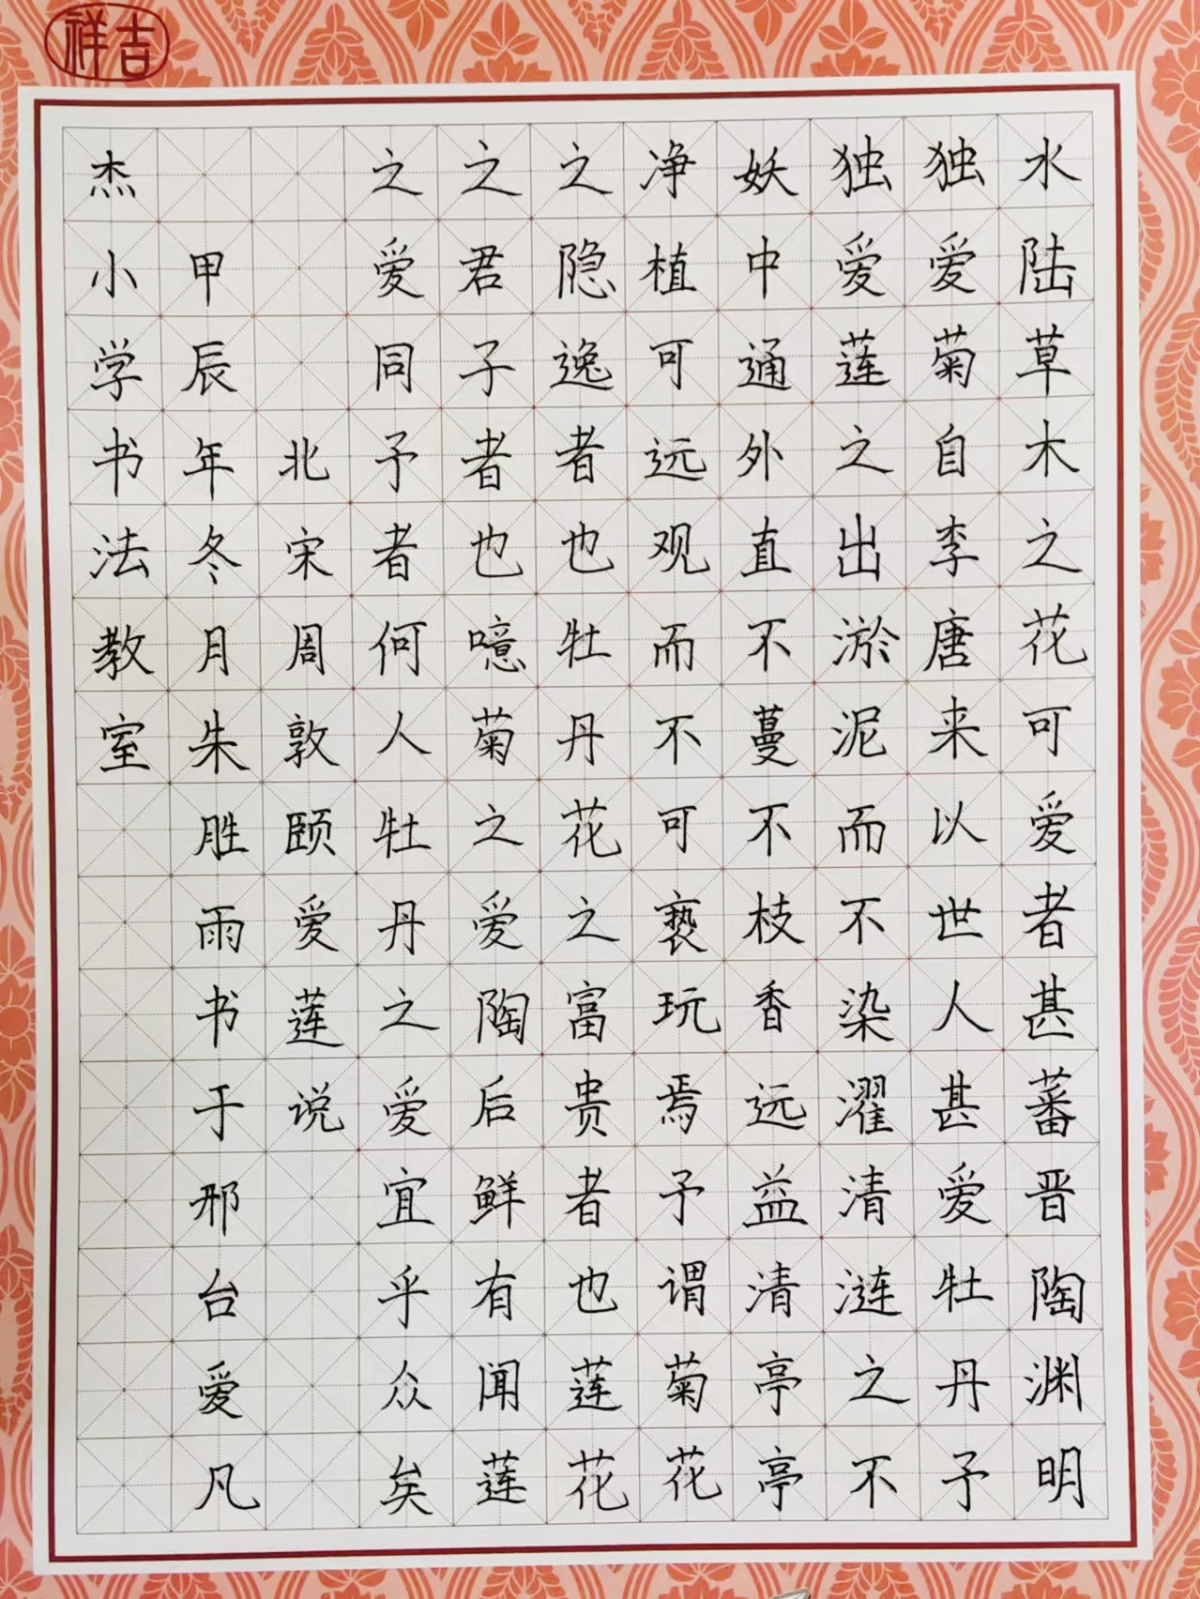 吉祥
水陆草木之花可爱者甚蕃晋陶渊明
独爱菊自李唐来以世人甚爱牡丹予
独爱莲之出淤泥而不染濯清涟之不
妖中通外直不蔓不枝香远益清亭亭
净植可远观而不可亵玩焉予谓菊花
之隐逸者也牡丹花之富贵者也莲花
之君子者也噫菊之爱陶后鲜有闻莲
之爱同予者何人牡丹之爱宜乎众矣
北宋周敦颐爱莲说
甲辰年冬月朱胜雨书于邢台爱凡
杰小学书法教室